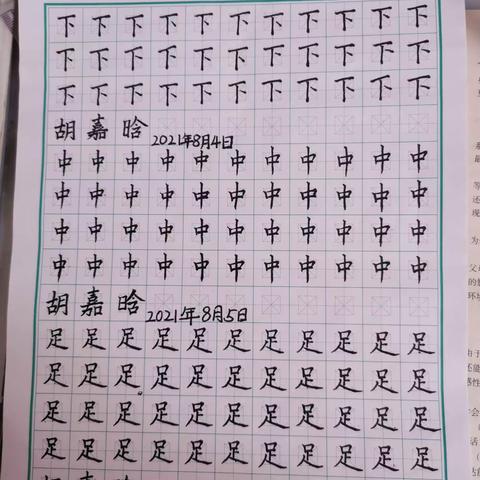 下下下下下下下下下下下
下下下下下下下下下下下
下下下下下下下下下下下
胡嘉晗 2021年8月4日
中中中中中中中中中中中
中中中中中中中中中中中
中中中中中中中中中中中
中中中中中中中中中中中
胡嘉晗 2021年8月5日
足足足足足足足足足足足
足足足足足足足足足足足
足足足足足足足足足足足
足足足足足足足足足足足